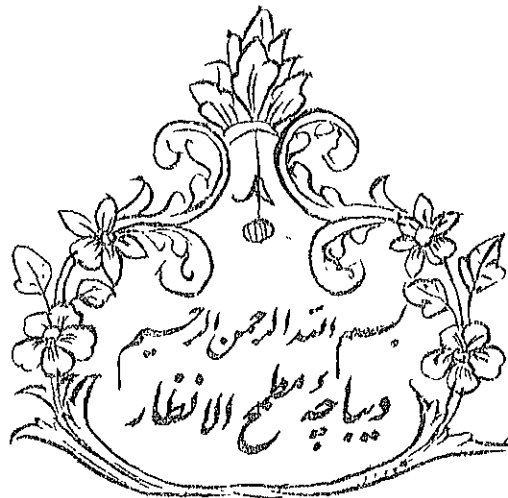 بسم الله الرحمن الرحیم
دیباچهٔ مطمح الانظار